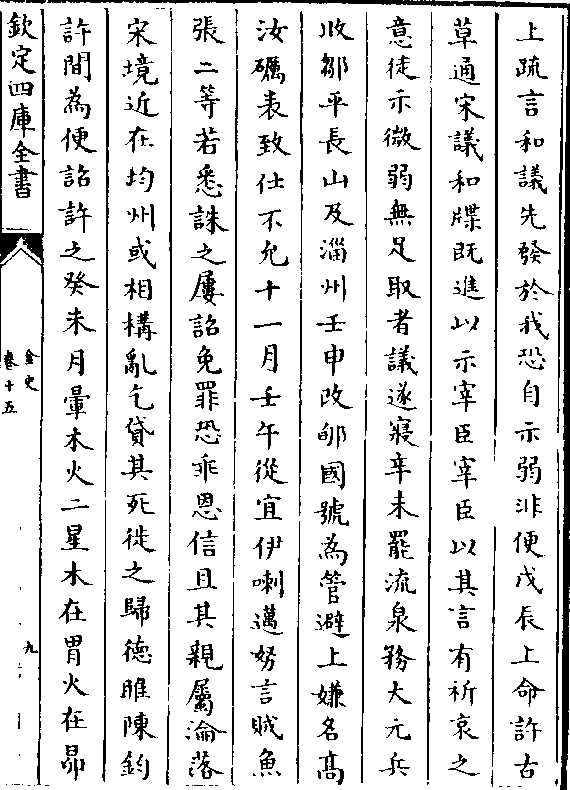 上疏言和議先發於我恐自示弱非便戊辰上命許古
草通宋議和牒既進以示宰臣宰臣以其言有祈哀之
意徒示微弱無足取者議遂寢辛未罷流泉務大元兵
收鄒平長山及淄州壬申改郕國號為管避上嫌名高
汝礪表致仕不允十一月壬午從宜伊喇邁努言賊魚
張二等若悉誅之屢詔免罪恐乖恩信且其親屬淪落
宋境近在均州或相構亂乞貸其死徙之歸德睢陳鈞
許間為便詔許之癸未月暈木火二星木在胃火在昴
欽定四庫全書
金史
卷十五
九